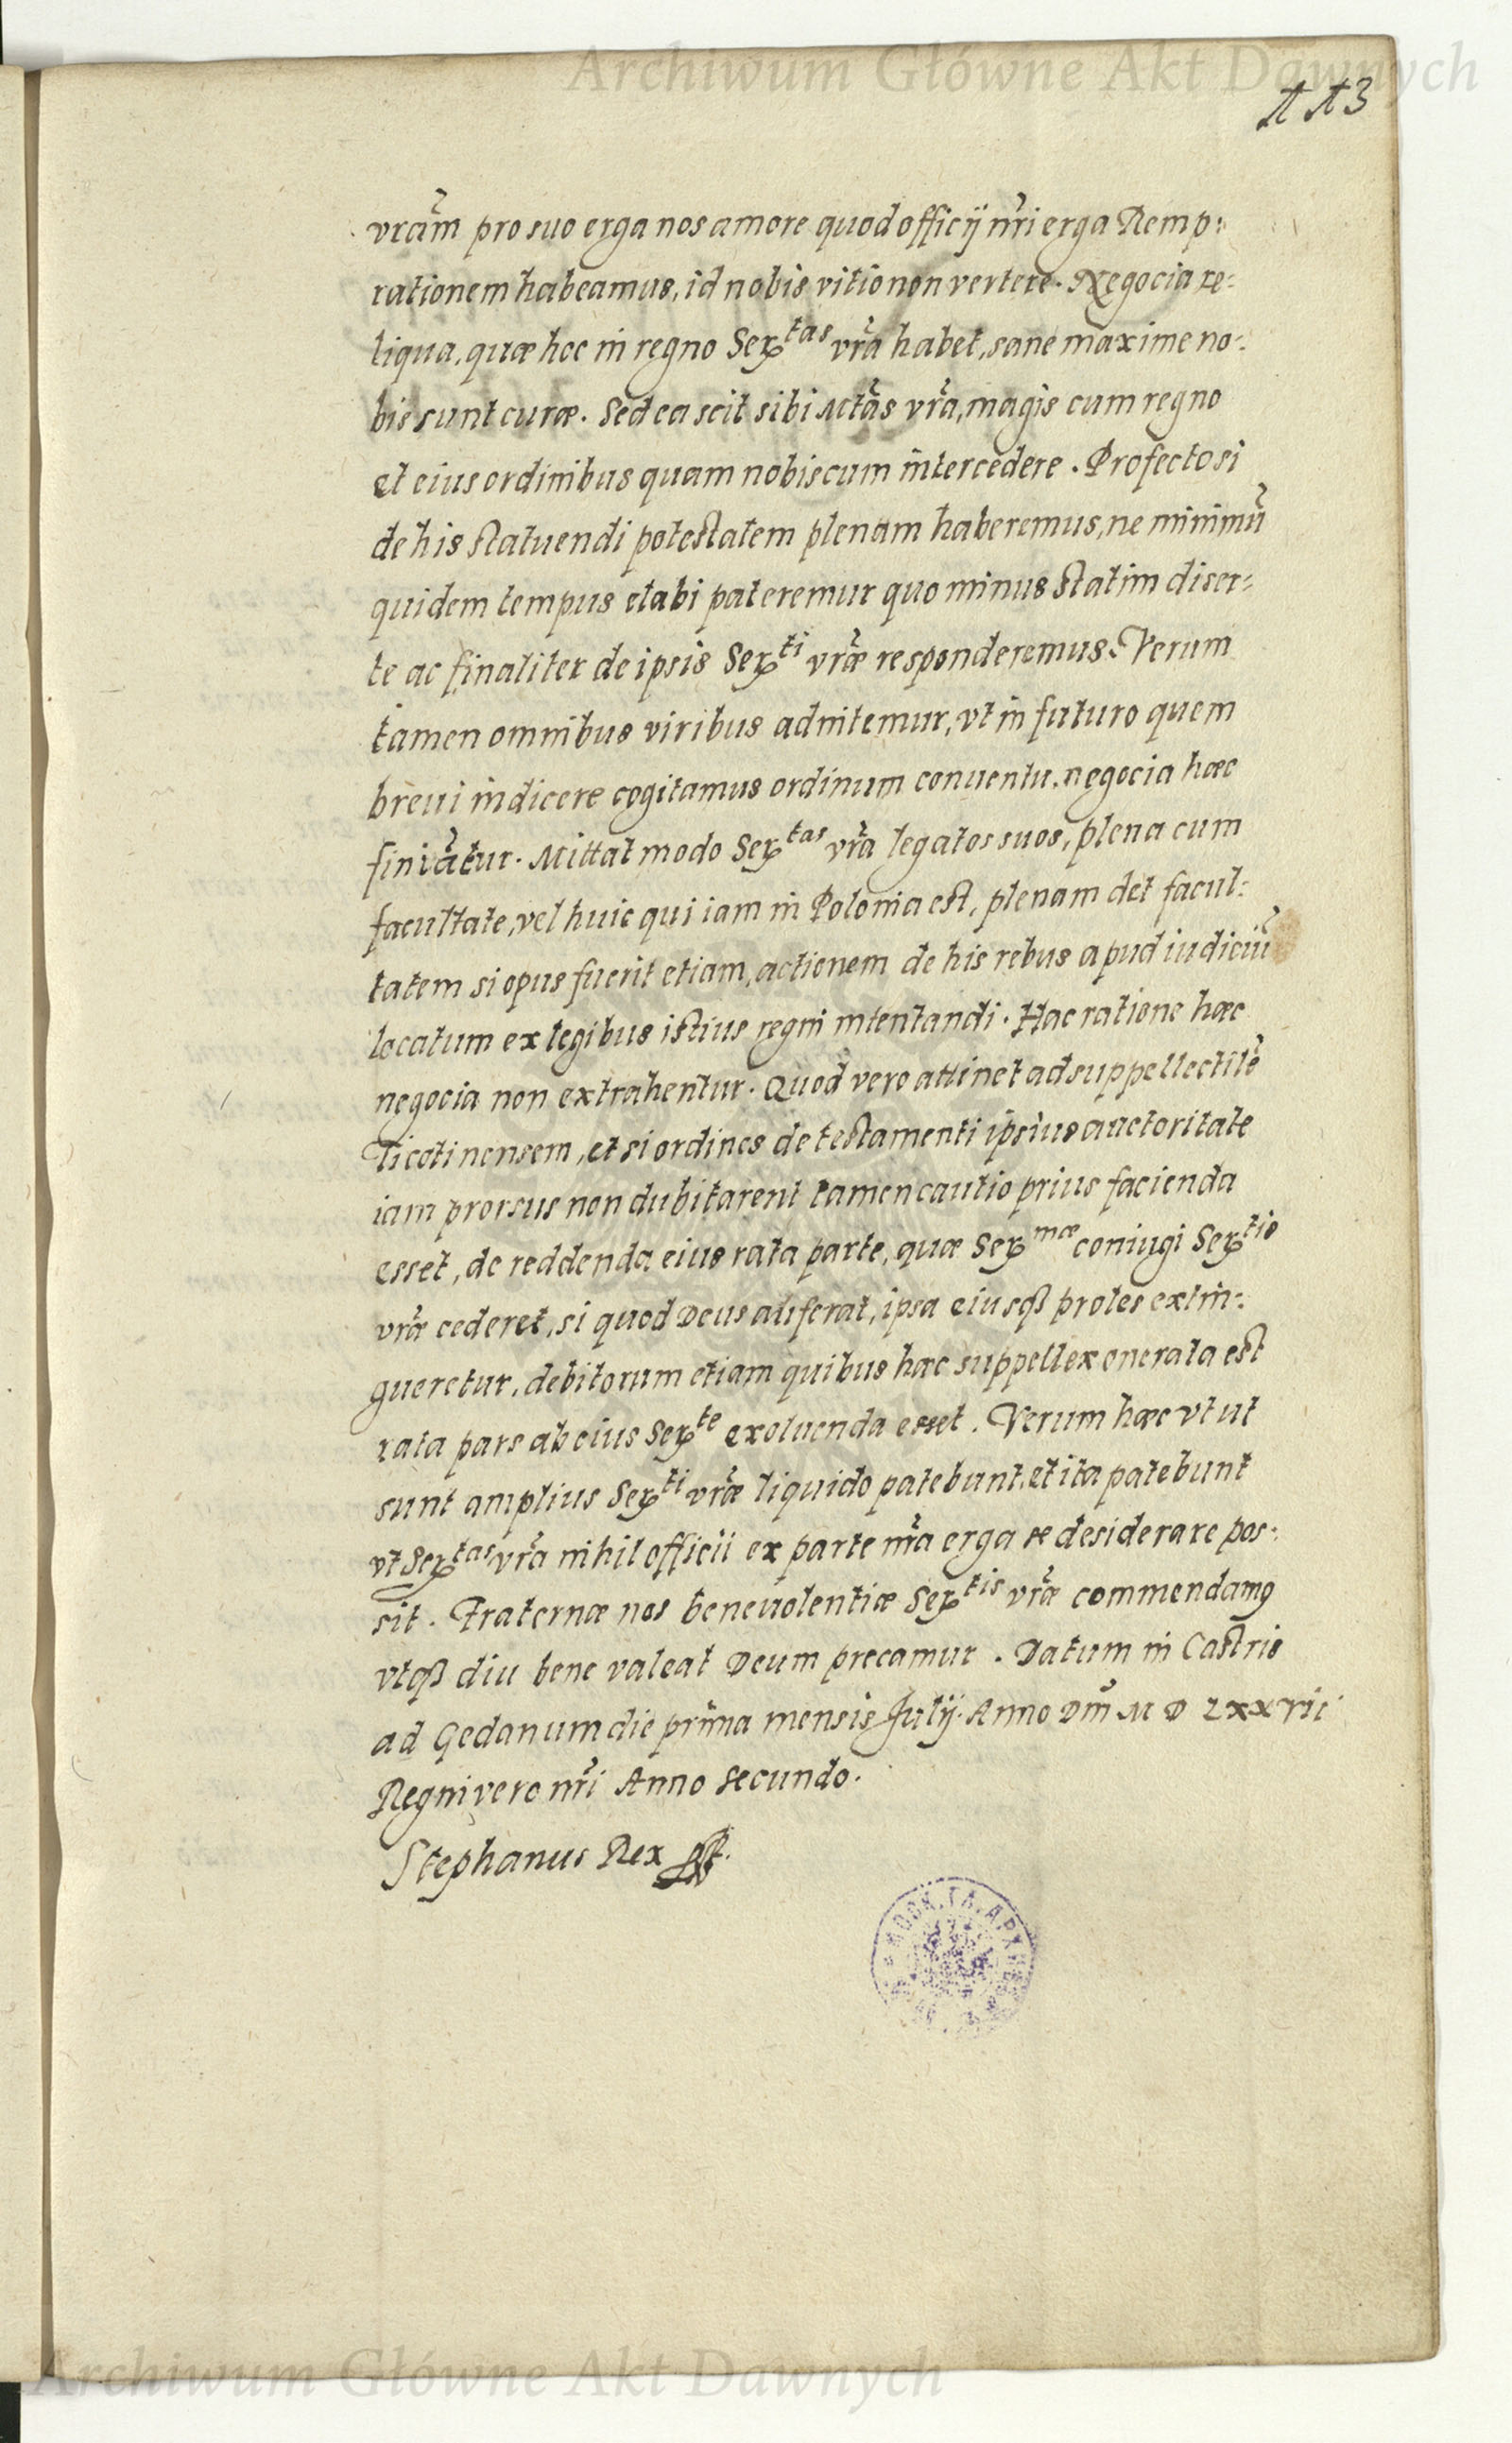 Archiwum Główne Akt Dawnych
113
vrãm pro suo erga nos amore quod officij nr̃i erga Remp:
rationem habeamus, id nobis vitio non vertere. Negocia re-
liqua, quæ hoc in regno Serᵗᵃˢ vr̃a habet, sane maxime no-
bis sunt curæ. Sed ea scit sibi Mtãs vr̃a, magis cum regno
et eius ordinibus quam nobiscum intercedere. Profecto si
de his statuendi potestatem plenam haberemus, ne minimũ
quidem tempus elabi pateremur quo minus statim diser-
te ac finaliter de ipsis Serᵗⁱ vr̃æ responderemus. Verum
tamen omnibus viribus adnitemur, vt in futuro quem
breui indicere cogitamus ordinum conuentu, negocia hæc
finiãtur. Mittat modo Serᵗᵃˢ vr̃a legatos suos, plena cum
facultate, vel huic qui iam in Polonia est, plenam det facul-
tatem si opus fuerit etiam, actionem de his rebus apud iudiciũ
locatum ex legibus istius regni intentandi. Hac ratione hæc
negocia non extrahentur. Quod vero attinet ad suppellectilẽ
Ticotinensem, et si ordines de testamenti ipsius auctoritate
iam prorsus non dubitarent tamen cautio prius facienda
esset, de reddenda eius rata parte, quæ Serᵐᵃᵉ coniugi Serᵗⁱˢ
vr̃æ cederet, si quod Deus auferat, ipsa eiusqꝫ proles extin-
gueretur, debitorum etiam quibus hæc suppellex onerata est
rata pars ab eius Serᵗᵉ exoluenda esset. Verum hæc vt ut
sunt amplius Serᵗⁱ vr̃æ liquido patebunt, et ita patebunt
vt Serᵗᵃˢ vr̃a nihil officii ex parte nr̃a erga se desiderare pos-
sit. Fraternæ nos beneuolentiæ Serᵗⁱˢ vr̃æ commendamꝰ
vtqꝫ diu bene valeat Deum precamur. Datum in Castris
ad Gedanum die prima mensis Julij. Anno Dm̃ M D LXXVII
Regni vero nr̃i Anno secundo.
Stephanus Rex
Archiwum Główne Akt Dawnych